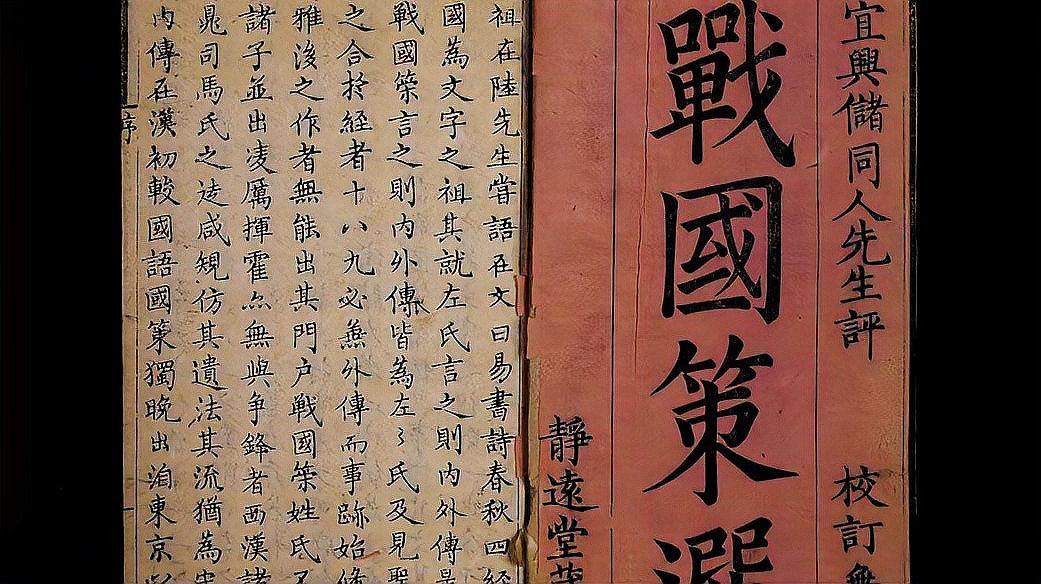 宜興儲同人先生評 校訂無
戰國策選
靜遠堂
祖在陸先生嘗語在文曰易書詩春秋四經
國為文字之祖其就左氏言之則内外傳是
戰國策言之則内外傳皆為左〻氏及見聖
之合於經者十八九必兼外傳而事跡始備
雅後之作者無能出其門户戰國策姓氏
諸子並出凌厲揮霍亦無與争鋒者西漢諸
晁司馬氏之徒咸規仿其遺法其流猶為
内傳在漢初較國語國策獨晚出洎東京
序